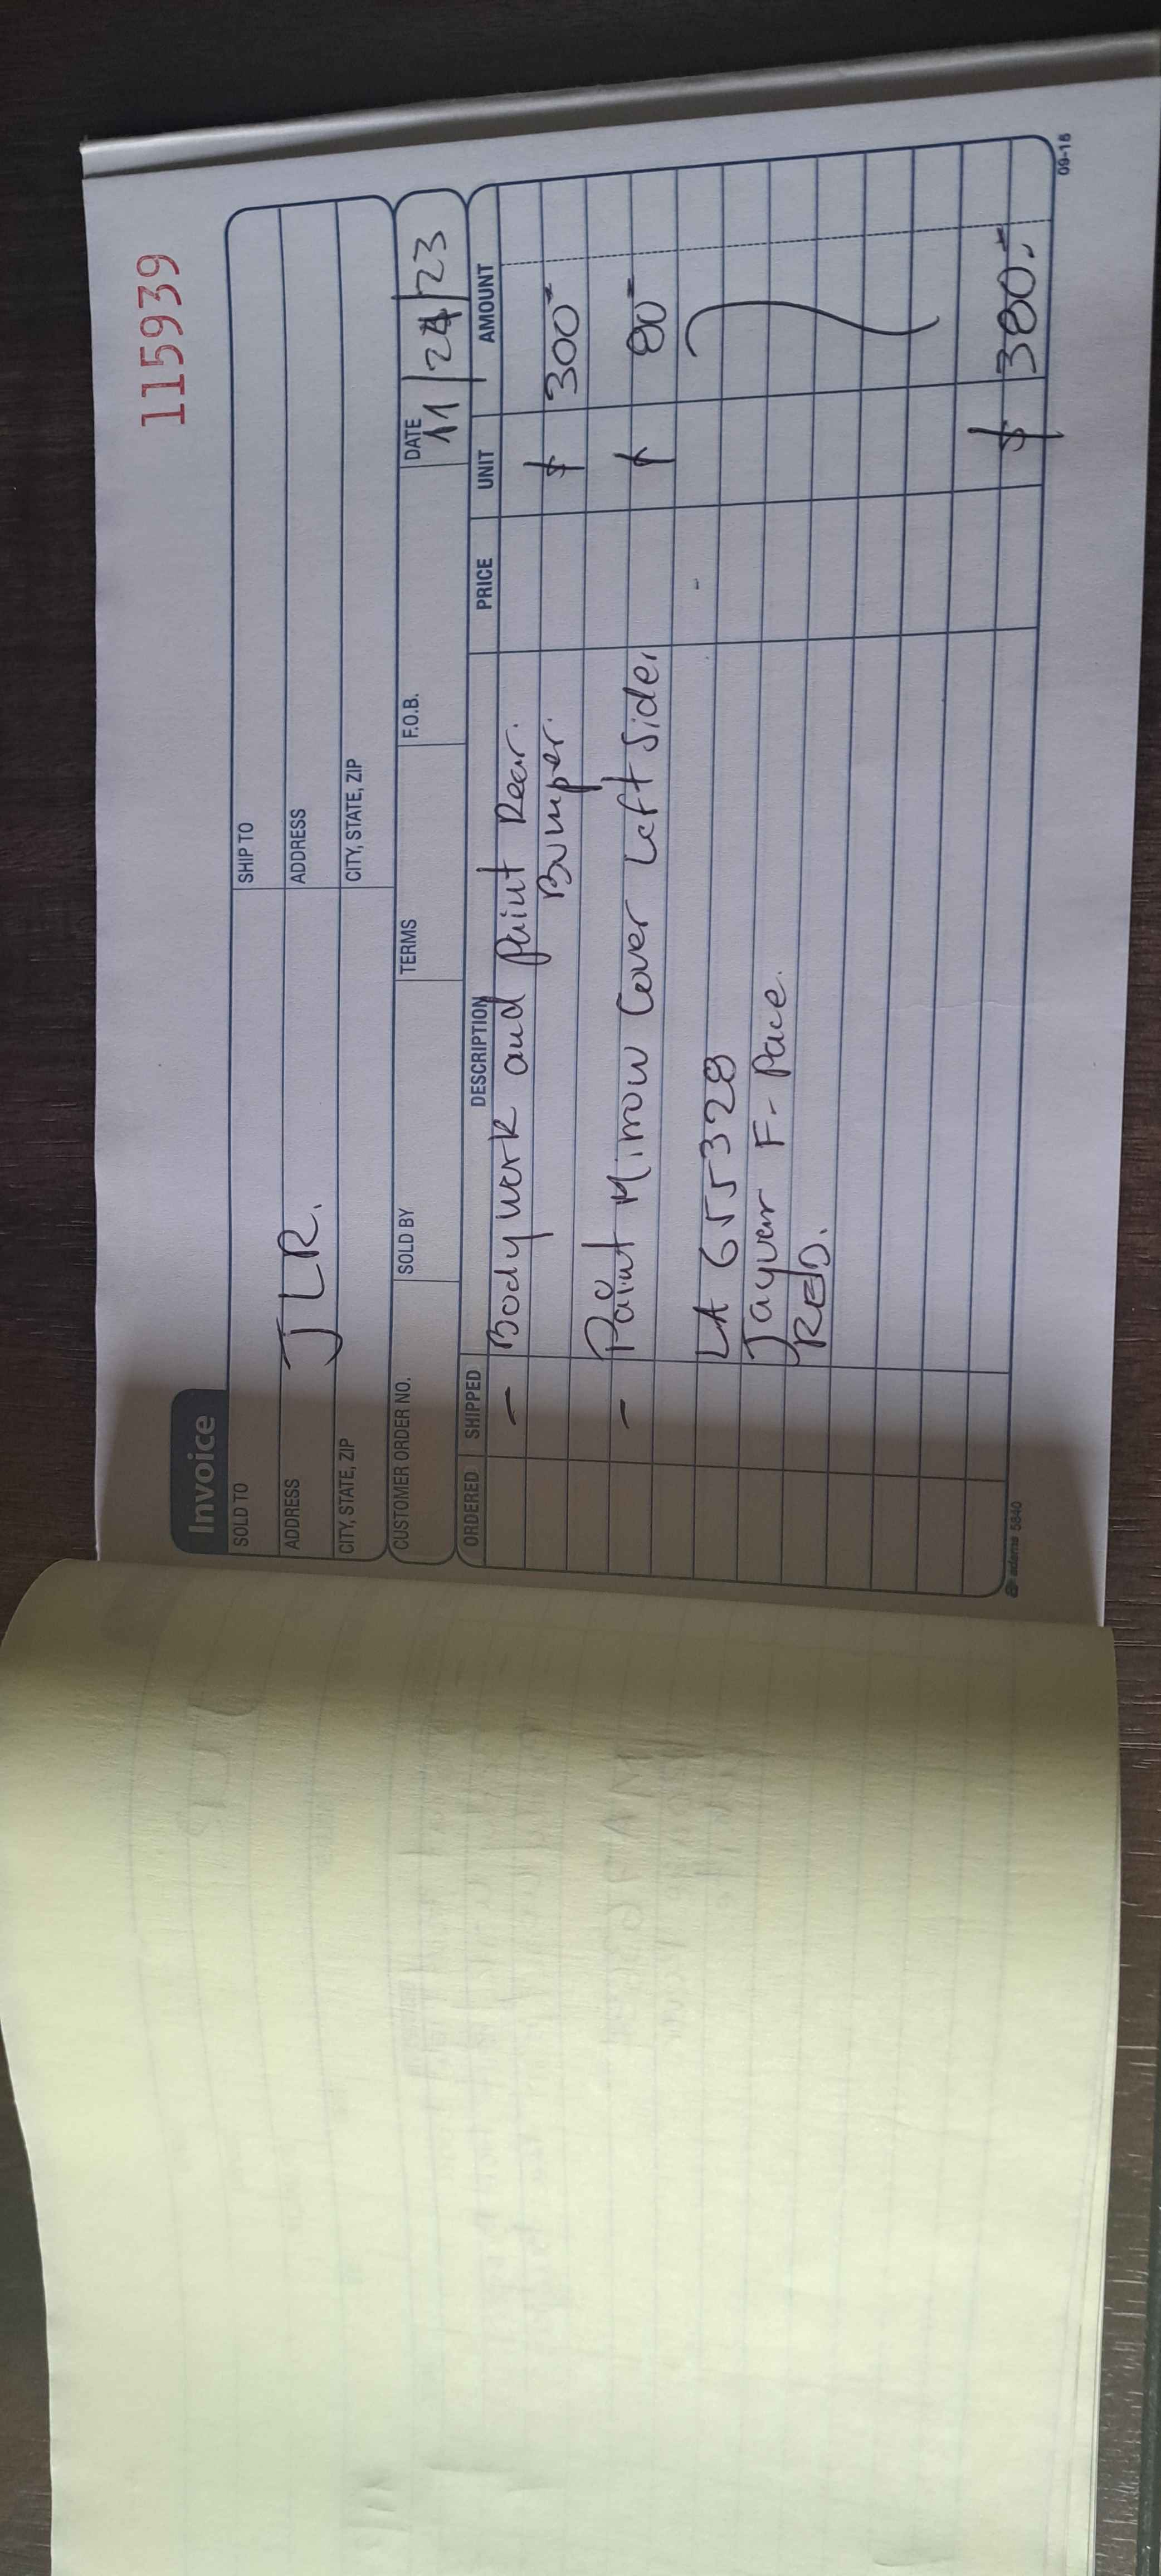 115939
Invoice
SOLD TO
SHIP TO
ADDRESS
ADDRESS
JLR.
CITY, STATE, ZIP
CITY, STATE, ZIP
CUSTOMER ORDER NO. SOLD BY TERMS F.O.B. DATE
11/24/23
ORDERED SHIPPED DESCRIPTION PRICE UNIT AMOUNT
- Bodywork and paint Rear.
Bumper. $ 300-
- Paint Mirrow Cover Left Side. $ 80-
LA 655328
Jayuar F-Pace.
RED.
$ 380.-
adams 5840
09-16